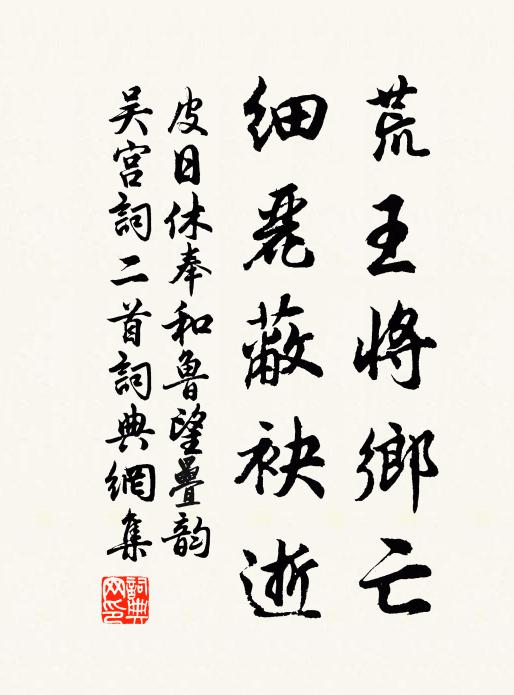 荒王將鄉亡
細麗蔽袂逝
皮日休奉和魯望疊韵
吳宮詞二首詞典網集
詞典
网印